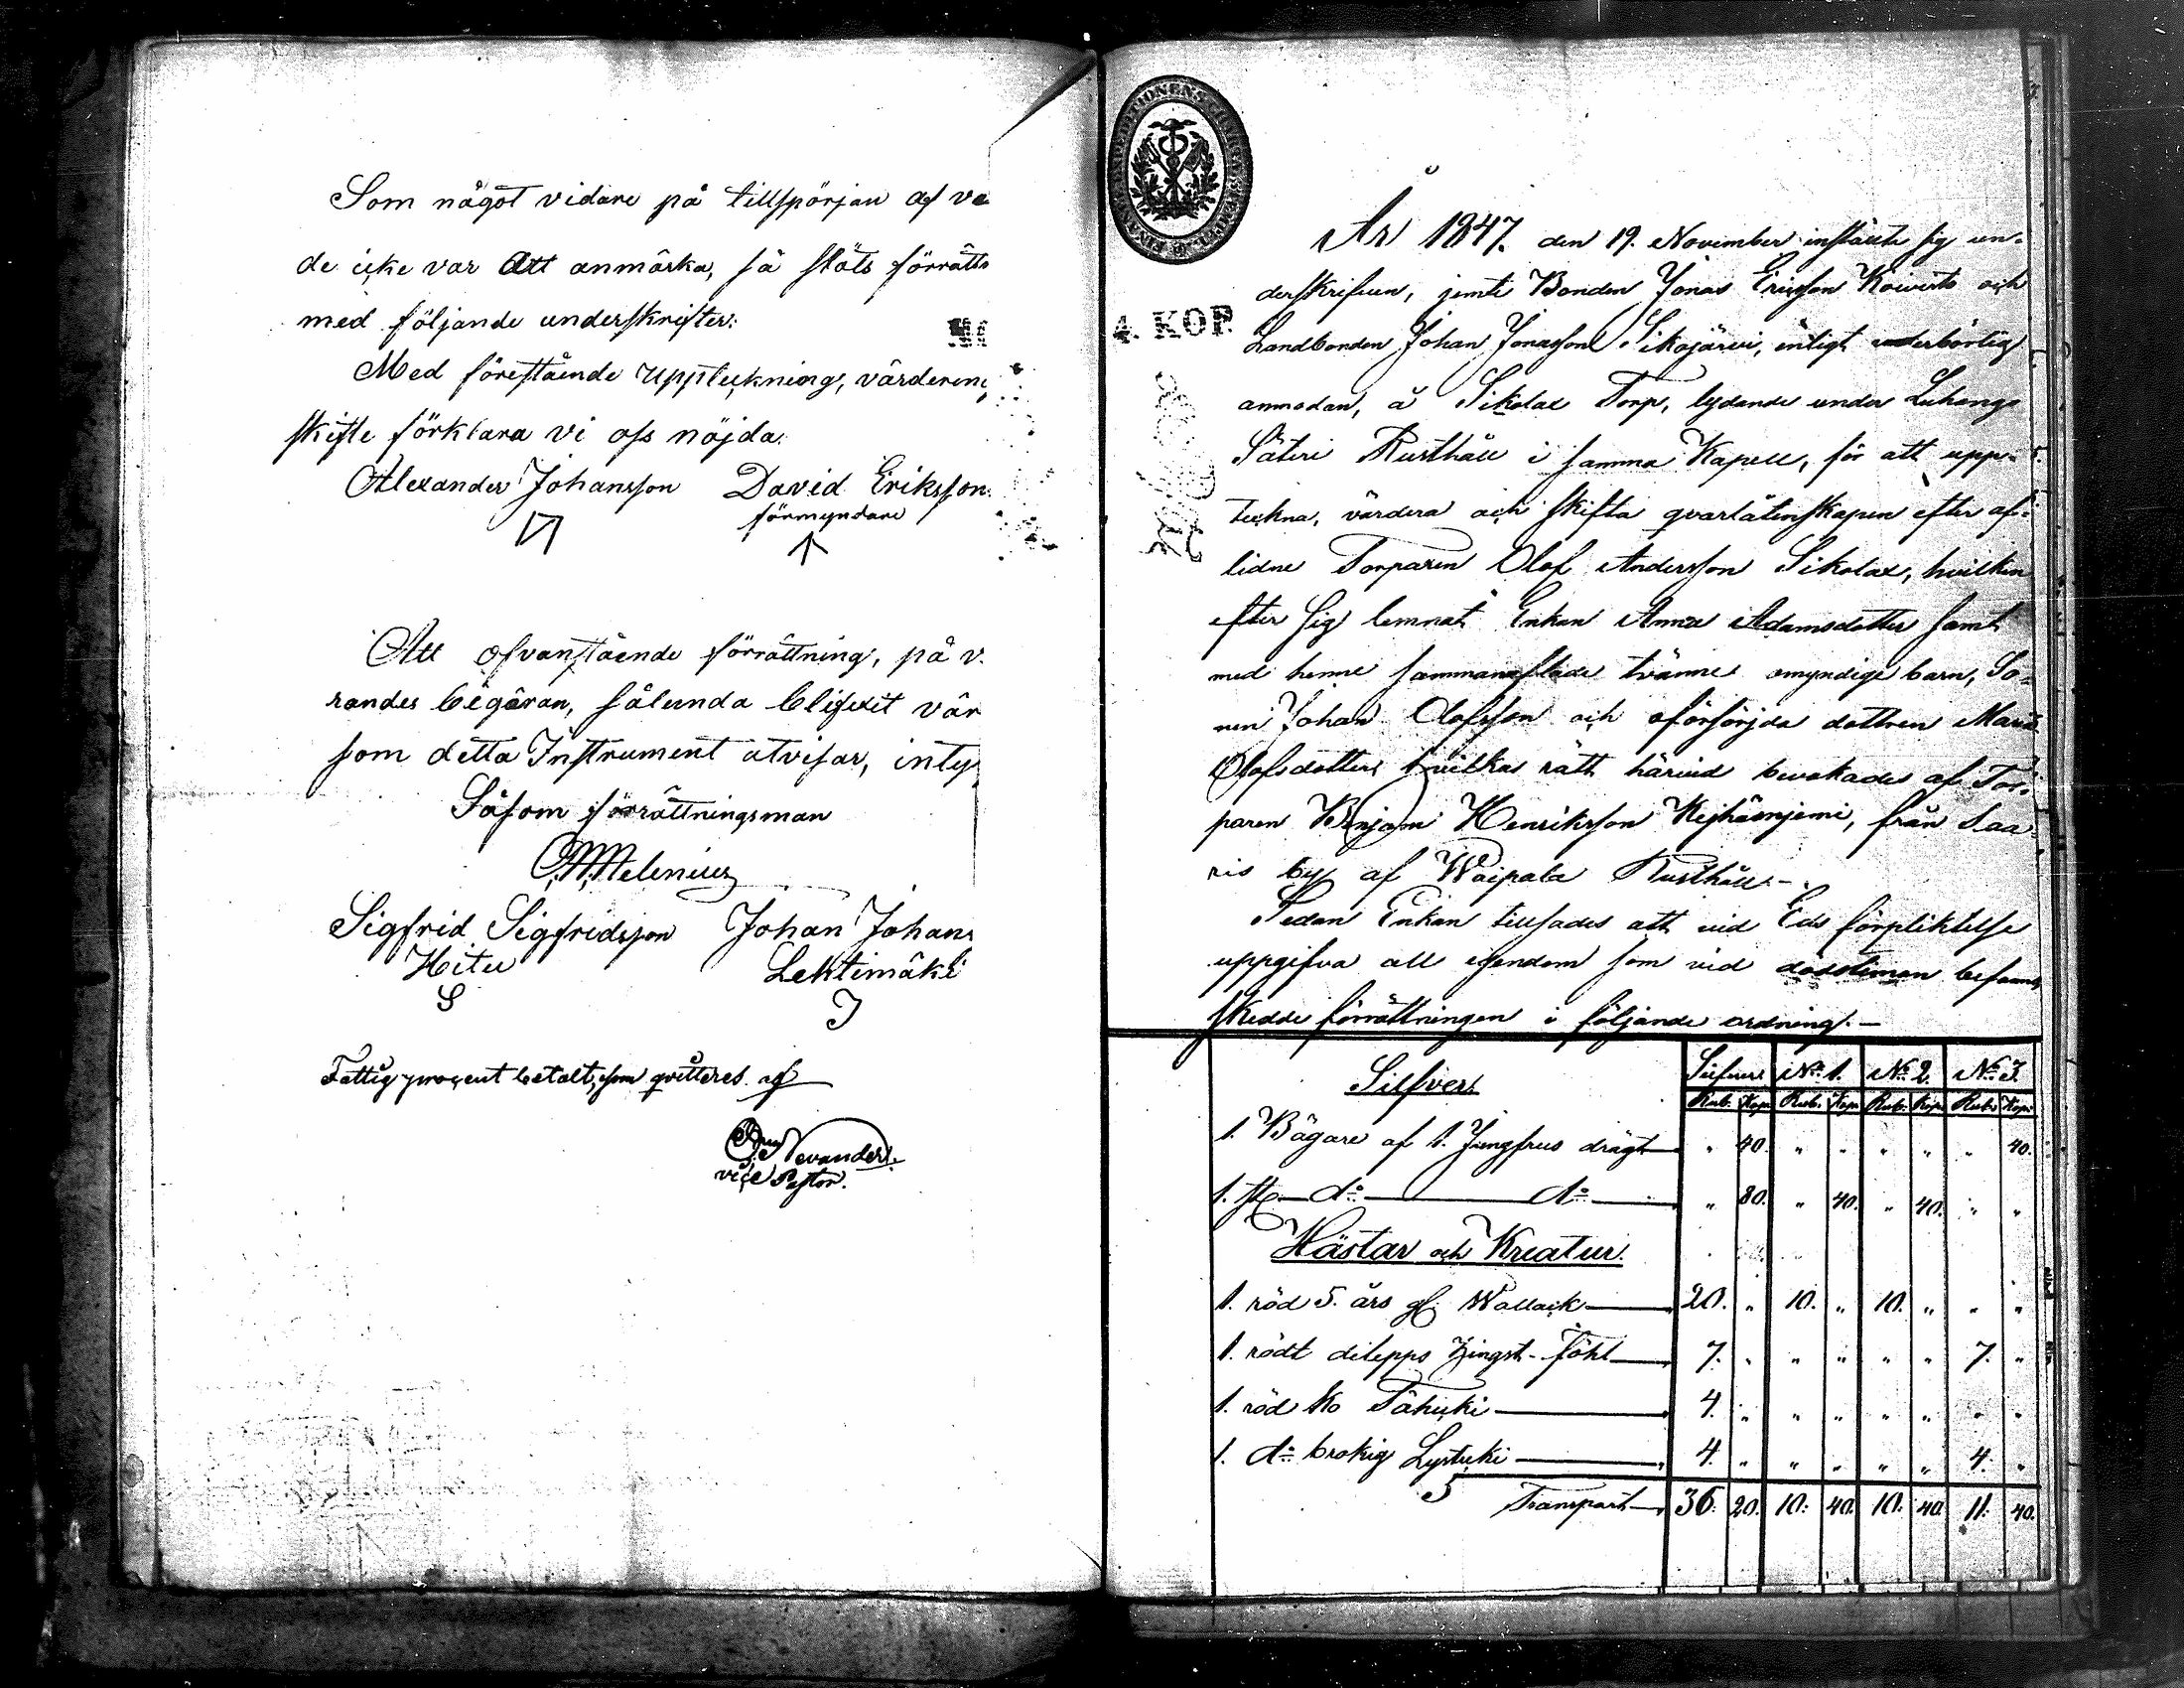 Som något vidare på tillspörjan af va
de icke var Att anmärka, så slöts förrätts
med följande underskrifter:
Med förestående Uppteckning, värdering
skifte förklara vi oss nöjda.
Alexander Johansson David Eriksson
förmyndare
Att ofvanstående förrättning, på v.
randes begäran, sålunda blifvit vär
som detta Instrument utvisar, inty
Såsom förrättningsman
Melenius
Sigfrid Sigfridsson Johan Johans
Hitu Lehtimäki
S J
Fattig procent betalt, som qvitteras af
Nevander.
vice Pastor.
4. KOP.
År 1847. den 19. November instälte sig un-
derskrifven, jemte Bonden Jonas Ericsson Koivisto och
Landbonden Johan Jonasson Sikajärvi, enligt vederbörlig
anmodan, å Sikolax Torp, lydande under Luhanga
Säteri Rusthåll i samma Kapell, för att upp-
teckna, värdera och skifta qvarlåtenskapen efter af-
lidne Torparen Olof Andersson Sikolax, hvilken
efter sig lemnat Enkan Anna Adamsdotter samt
med henne sammanaflade tvänne omyndige barn, So-
nen Johan Olofsson och oförsörjda dottren Maria
Olofsdotter hvilkas rätt härvid bevakades af Tor-
paren Benjam Henriksson Keihäsnjemi, från Saa-
ris by af Waipala Rusthåll.-
Sedan Enkan tillsades att vid Eds förpliktelse
uppgifva all egendom som vid dödstiman befanns,
skedde förrättningen i följande ordning.-
Silfver Silfver No 1. No 2. No 3.
Rub. Kop. Rub. Kop. Rub. Kop. Rub. Kop.
1. Bägare af 1. Jungfrus drägt " 40. " " " " " 40.
1. st. do do " 80. " 40. " 40. " "
Hästar och Kreatur.
1. röd 5. års gl. Wallack 20. " 10. " 10. " " "
1. rödt dilepps Hingst-föhl 7. " " " " " 7. "
1. röd Ko Tähicki 4. " " " " " " "
1. do brokig Lysticki 4. " " " " " 4. "
5
Transport 36. 20. 10. 40. 10. 40. 11. 40.